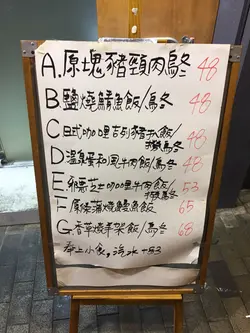 A.原塊豬頸肉烏冬 48
B鹽燒鯖魚飯/烏冬 48
C日式咖喱吉列豬扒飯/烏冬 48
D溫泉蛋和風牛肉飯/烏冬 48
E芝士咖哩牛肉飯/烏冬 53
F原條蒲燒鰻魚飯 65
G香草燒羊架飯/烏冬 68
奉上小食,汽水